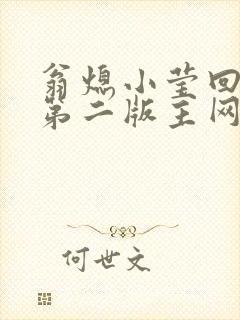 翁熄小莹回
第二版主网
何世文